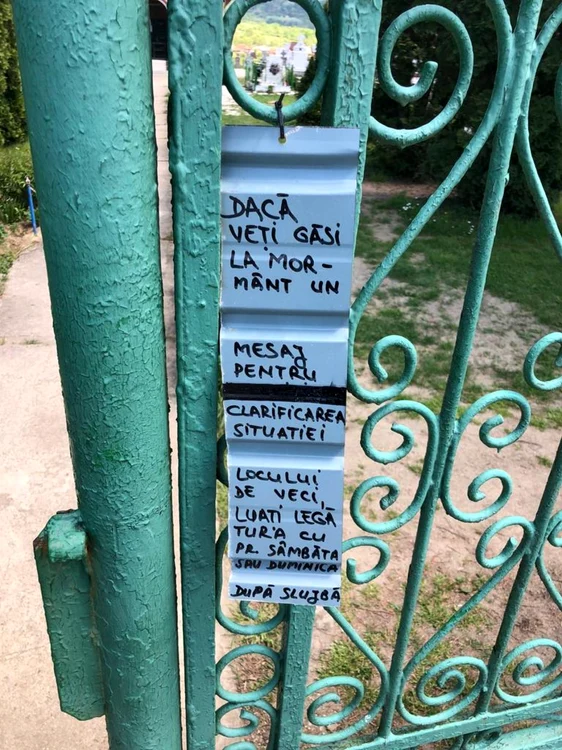 DACĂ
VEȚI GĂSI
LA MOR-
MÂNT UN
MESAJ
PENTRU
CLARIFICAREA
SITUATIEI
LOCULUI
DE VECI,
LUATI LEGĂ
TUR'A CU
PR. SÂMBĂTA
SAU DUMINICA
DUPĂ SLUJBĂ